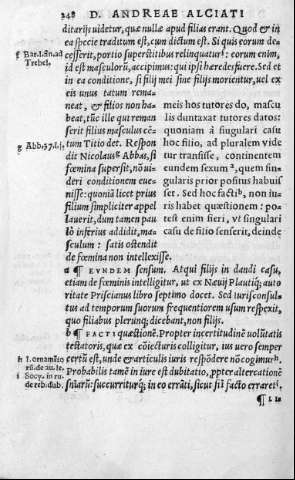 248 D. ANDREAE ALCIATI
ditarijs uidetur, quæ nullæ apud filias erant. Quod & in
f Bar. l. an. ad Trebel. ea specie traditum est, cum dictum est. Si quis eorum de-
cesserit, portio superstitibus relinquatur: eorum enim,
id est masculorũ, accipimus: qui ipsi hæredes fiere. Sed et
in ea conditione, si filij mei sine filijs morientur, uel ex
eis unus tatum rema-
neat, & filios non ha-
beat, tũc ille qui reman
serit filius masculus cẽ-
tum Titio det. Respon
g Abb. 57. l. 1. dit Nicolaus Abbas, si
fœmina supersit, nõ ui-
deri conditionem eue-
nisse: quoniã licet prius
filium simpliciter appel
lauerit, dum tamen pau
lò inferius addidit, ma-
sculum: satis ostendit
de fœmina non intellexisse.
meis hos tutores do, mascu
lis duntaxat tutores datos:
quoniam à singulari casu
hoc filio, ad pluralem vide
tur transisse, continentem
eundem sexum a, quem sin-
gularis prior positus habuiſ
set. Sed hoc facti b, non iu-
ris habet quæstionem: po-
test enim fieri, vt singulari
casu de filio senserit, deinde
a ¶ EVNDEM sensum. Atqui filijs in dandi casu,
etiam de fœminis intelligitur, ut ex Næuij Plautiq; auto
ritate Priscianus libro septimo docet. Sed iurisconsul-
tus ad temporum suorum frequentiorem usum respexit,
quo filiabus plerunq; dicebant, non filijs.
b ¶ FACTI quæstionẽ. Propter incertitudinẽ uolũtatis
testatoris, quæ ex cõiecturis colligitur, ius uero semper
certũ est, unde & articulis iuris respõdere nõ cogimur h.
Probabilis tamẽ in iure est dubitatio, ppter altercationẽ
succurriturq; in eo errãti, sicut facto
¶ L10